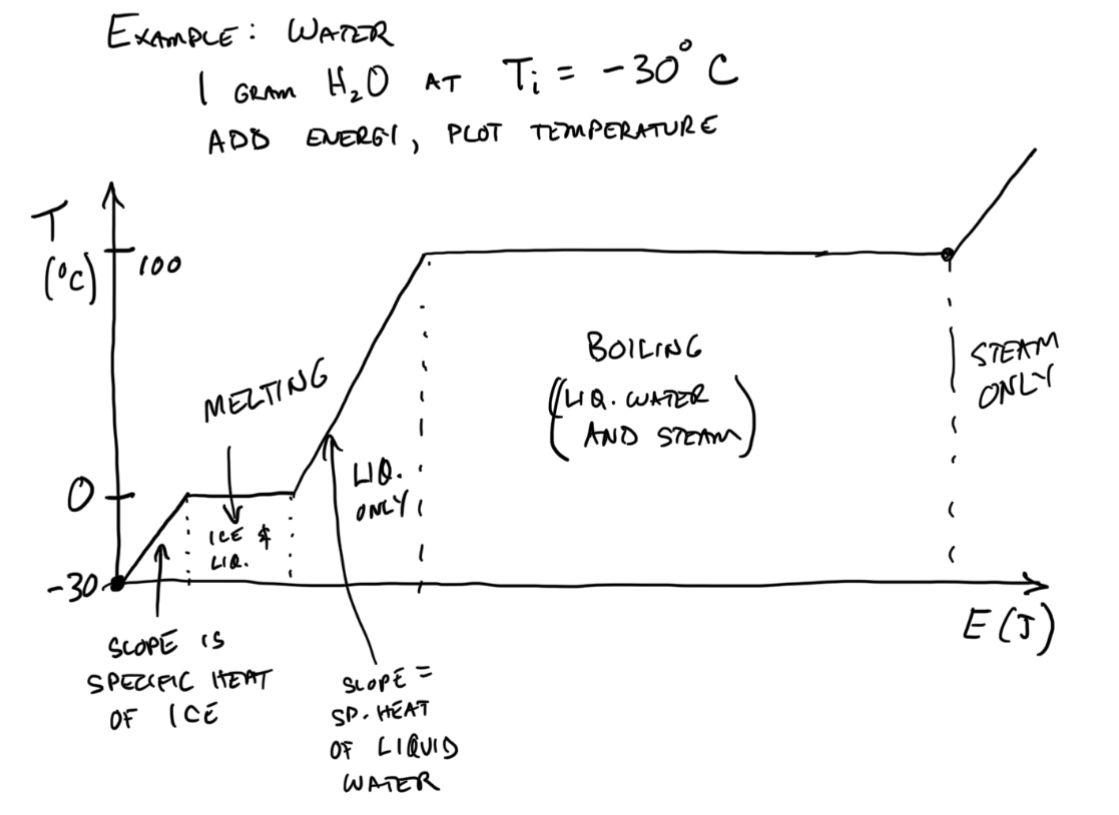 EXAMPLE: WATER
1 GRAM H₂O AT Tᵢ = -30° C
ADD ENERGY, PLOT TEMPERATURE
T
(°C)
100
0
-30
MELTING
ICE &
LIQ.
LIQ.
ONLY
BOILING
(LIQ. WATER
AND STEAM)
STEAM
ONLY
E (J)
SLOPE IS
SPECIFIC HEAT
OF ICE
SLOPE =
SP. HEAT
OF LIQUID
WATER